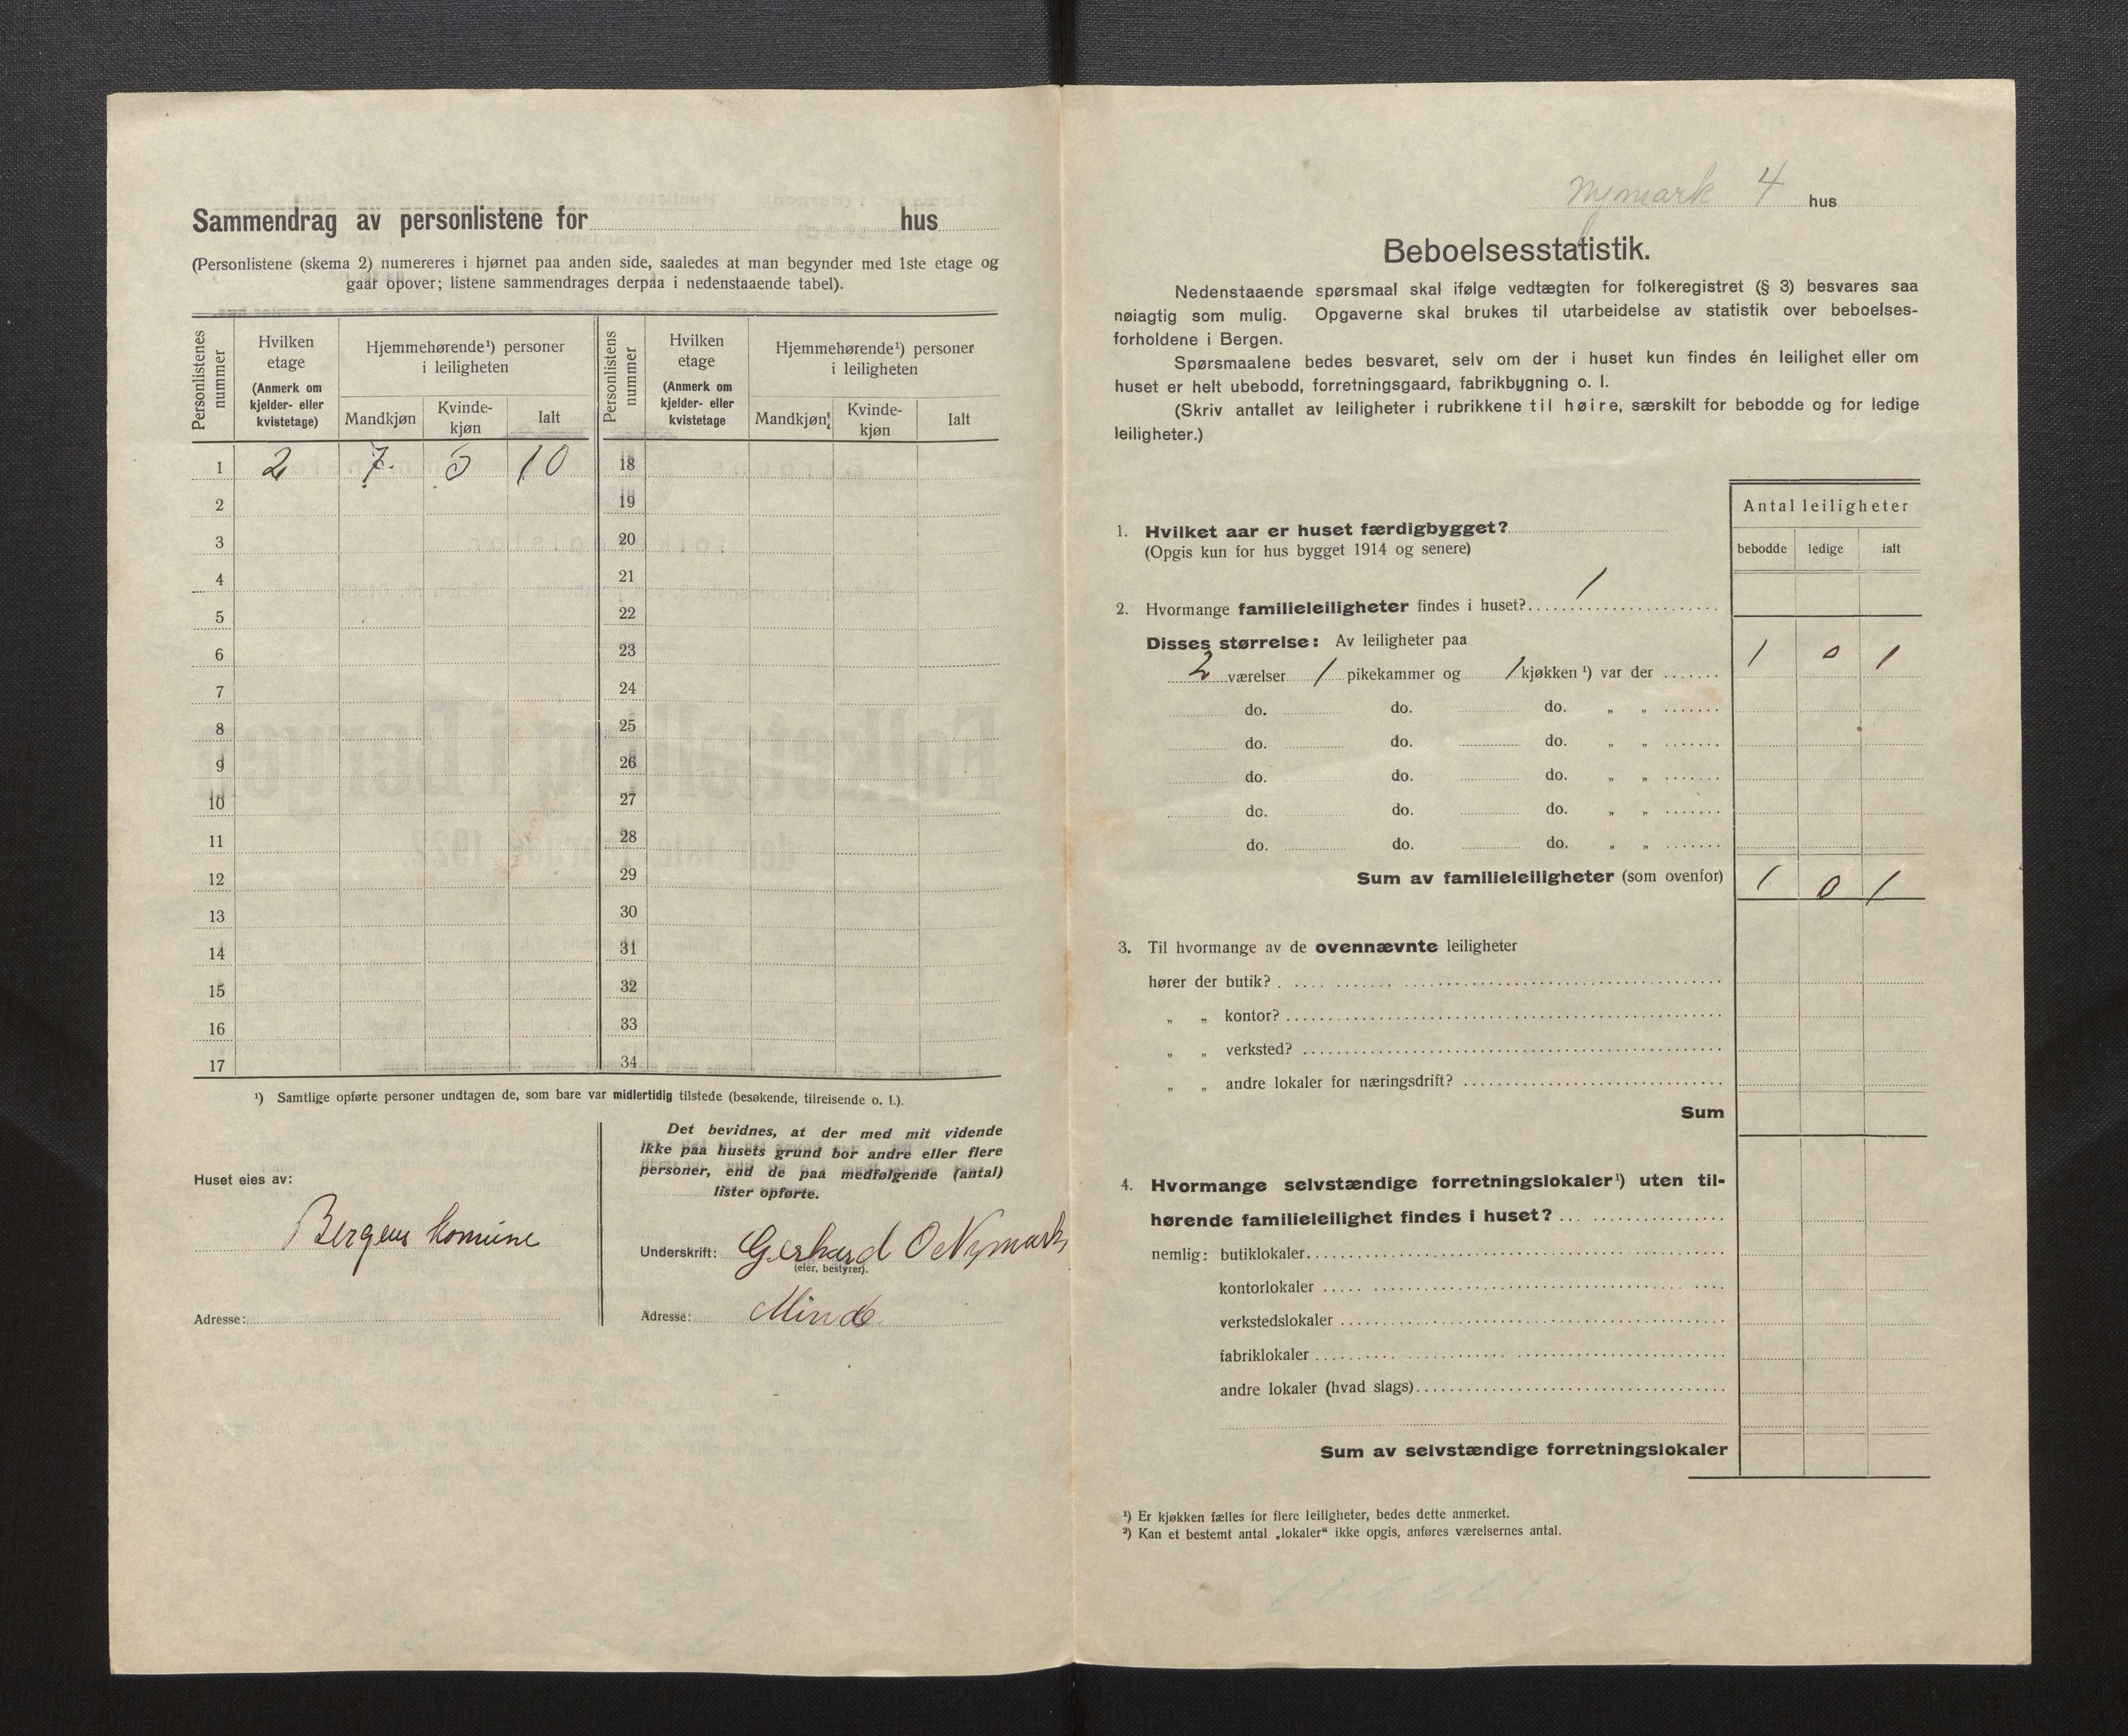 Sammendrag av personlistene for hus
(Personlistene (skema 2) numereres i hjørnet paa anden side, saaledes at man begynder med 1ste etage og
gaar opover; listene sammendrages derpaa i nedenstaaende tabel).
Personlistenes nummer
Hvilken etage
(Anmerk om kjelder- eller kvistetage)
Hjemmehørende¹) personer i leiligheten
Mandkjøn Kvinde-kjøn Ialt
Personlistens nummer
Hvilken etage
(Anmerk om kjelder- eller kvistetage
Hjemmehørende¹) personer i leiligheten
Mandkjøn Kvinde-kjøn Ialt
1 2 7 10 18
2 19
3 20
4 21
5 22
6 23
7 24
8 25
9 26
10 27
11 28
12 29
13 30
14 31
15 32
16 33
17 34
¹) Samtlige opførte personer undtagen de, som bare var midlertidig tilstede (besøkende, tilreisende o. l.).
Huset eies av:
Bergens komune
Adresse:
Det bevidnes, at der med mit vidende
ikke paa husets grund bor andre eller flere
personer, end de paa medfølgende (antal)
lister opførte.
Underskrift: Gerhard O Nymark
(eier, bestyrer).
Adresse: Minde
Nymark 4 hus
Beboelsesstatistik.
Nedenstaaende spørsmaal skal ifølge vedtægten for folkeregistret (§ 3) besvares saa
nøiagtig som mulig. Opgaverne skal brukes til utarbeidelse av statistik over beboelses-
forholdene i Bergen.
Spørsmaalene bedes besvaret, selv om der i huset kun findes én leilighet eller om
huset er helt ubebodd, forretningsgaard, fabrikbygning o. l.
(Skriv antallet av leiligheter i rubrikkene til høire, særskilt for bebodde og for ledige
leiligheter.)
Antal leiligheter
bebodde ledige ialt
1. Hvilket aar er huset færdigbygget?
(Opgis kun for hus bygget 1914 og senere)
2. Hvormange familieleiligheter findes i huset? 1
Disses størrelse: Av leiligheter paa
2 værelser 1 pikekammer og 1 kjøkken ¹) var der 1 0 1
do. do. do. „ „
do. do. do. „ „
do. do. do. „ „
do. do. do. „ „
do. do. do. „ „
Sum av familieleiligheter (som ovenfor) 1 0 1
3. Til hvormange av de ovennævnte leiligheter
hører der butik?
„ „ kontor?
„ „ verksted?
„ „ andre lokaler for næringsdrift?
Sum
4. Hvormange selvstændige forretningslokaler¹) uten til-
hørende familieleilighet findes i huset?
nemlig: butiklokaler
kontorlokaler
verkstedslokaler
fabriklokaler
andre lokaler (hvad slags)
Sum av selvstændige forretningslokaler
¹) Er kjøkken fælles for flere leiligheter, bedes dette anmerket.
²) Kan et bestemt antal „lokaler“ ikke opgis, anføres værelsernes antal.